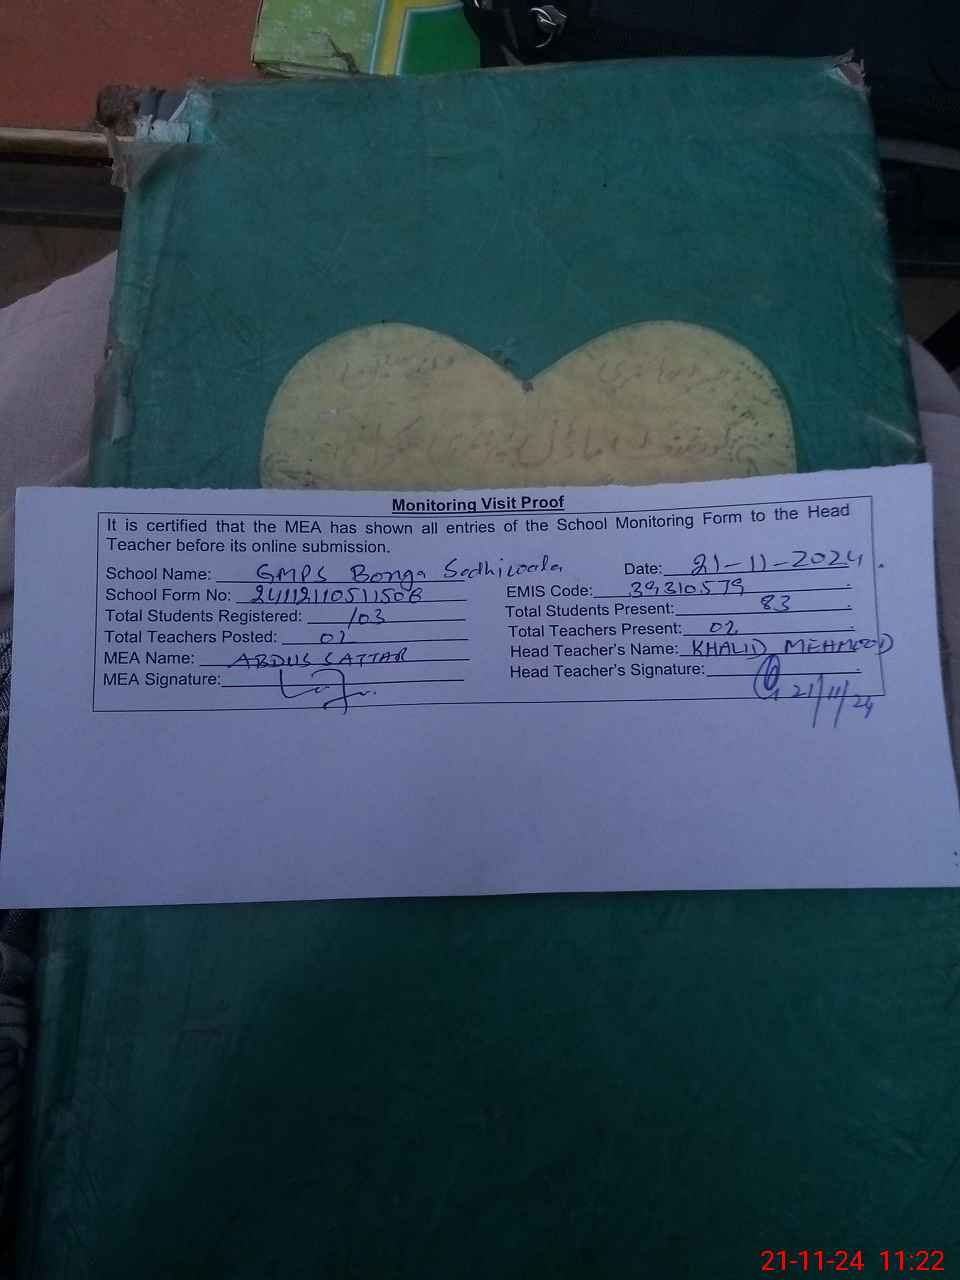 Monitoring Visit Proof
It is certified that the MEA has shown all entries of the School Monitoring Form to the Head
Teacher before its online submission.
School Name: GMPS Bonga Sadhiwala Date: 21-11-2024
School Form No: 2411211051150B EMIS Code: 39310579
Total Students Registered: 103 Total Students Present: 83
Total Teachers Posted: 02 Total Teachers Present: 02
MEA Name: ABDUS SATTAR Head Teacher's Name: KHALID MEHMOOD
MEA Signature: Head Teacher's Signature:
21/11/24
21-11-24 11:22